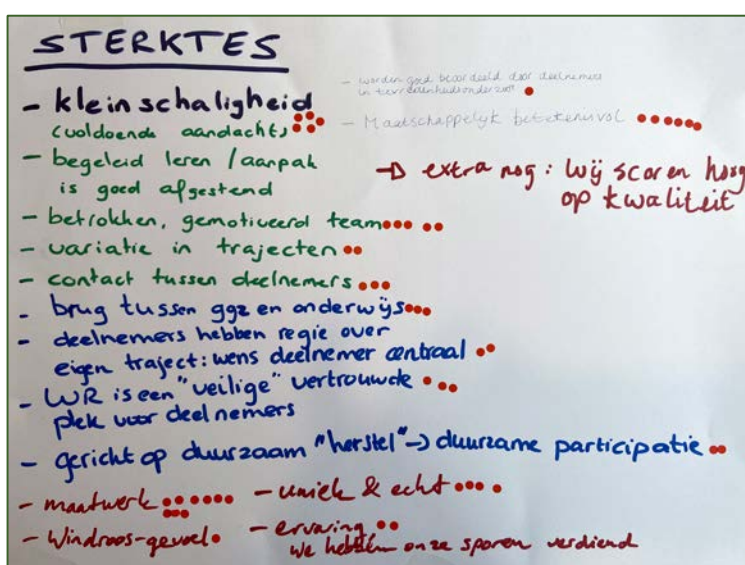 STERKTES
- kleinschaligheid
(voldoende aandacht)
- begeleid leren / aanpak
is goed afgestemd
- betrokken, gemotiveerd team
- variatie in trajecten
- contact tussen deelnemers
- brug tussen ggz en onderwijs
- deelnemers hebben regie over
eigen traject: wens deelnemer centraal
- WR is een "veilige" vertrouwde
plek voor deelnemers
- gericht op duurzaam "herstel" -> duurzame participatie
- maatwerk
- Windroos-gevoel
- uniek & echt
- ervaring
we hebben onze sporen verdiend
- worden goed beoordeeld door deelnemers
in tevredenheidsonderzoek
- Maatschappelijk betekenisvol
-> extra nog: wij scoren hoog
op kwaliteit